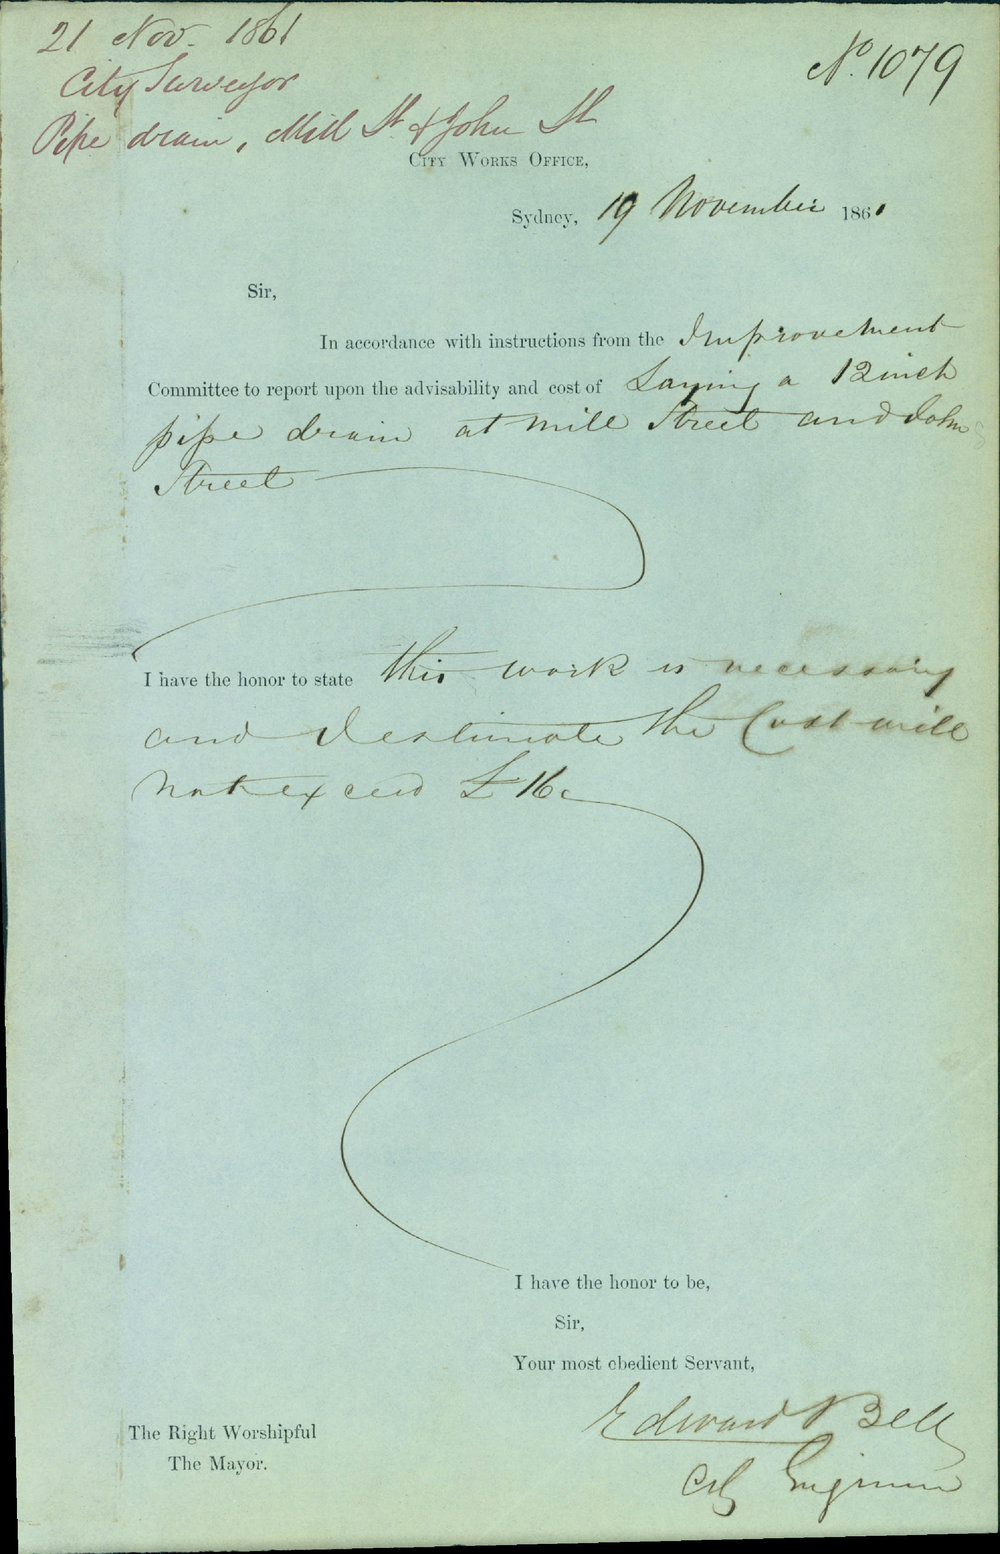 21 Nov. 1861
No. 1079
City Surveyor
Pipe drain, Mill St & John St
City Works Office,
Sydney, 19 November 1861
Sir,
In accordance with instructions from the Improvement
Committee to report upon the advisability and cost of Laying a 12 inch
pipe drain at Mill Street and John
Street
I have the honor to state this work is necessary
and I estimate the Cost will
not exceed £16.
I have the honor to be,
Sir,
Your most obedient Servant,
Edward Bell
City Engineer
The Right Worshipful
The Mayor.